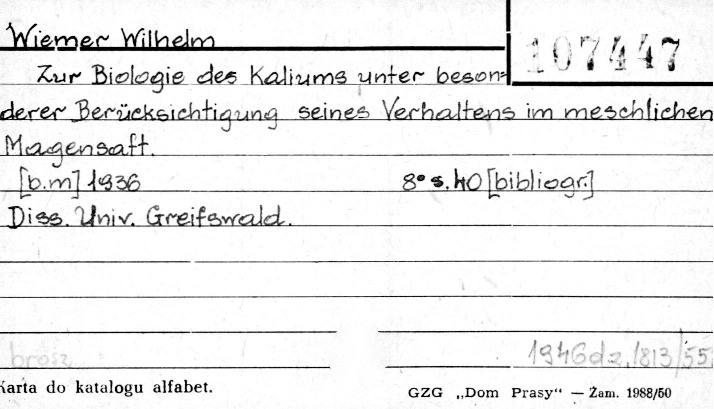 Wiemer Wilhelm
107447
Zur Biologie des Kaliums unter beson=
derer Berücksichtigung seines Verhaltens im meschlichen
Magensaft.
[b.m] 1936 8° s. 40 [bibliogr.]
Diss. Univ. Greifswald.
brosz.
1946 dz. 1813/55
Karta do katalogu alfabet.
GZG „Dom Prasy“ — Zam. 1988/50